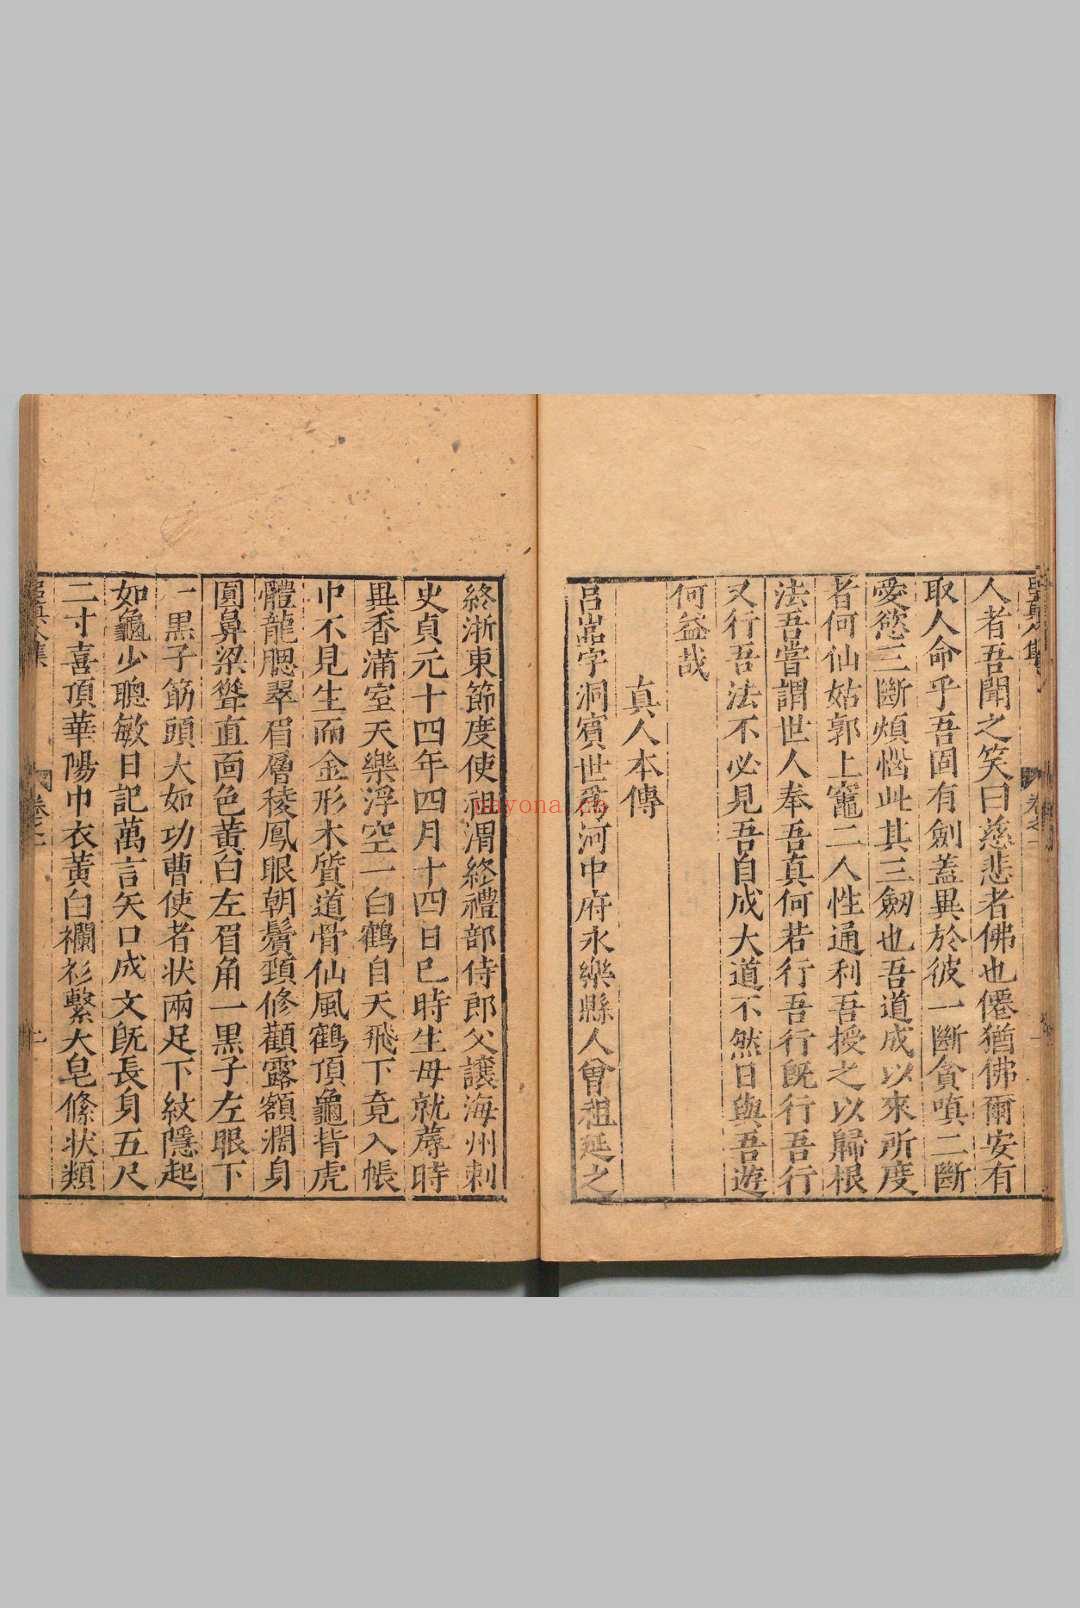 人者吾聞之笑曰慈悲者佛也僊猶佛爾安有
取人命乎吾固有劍蓋異於彼一斷貪嗔二斷
愛慾三斷煩惱此其三劒也吾道成以來所度
者何仙姑郭上竈二人性通利吾授之以歸根
法吾嘗謂世人奉吾真何若行吾行既行吾行
又行吾法不必見吾自成大道不然日與吾遊
何益哉
真人本傳
呂嵓字洞賓世爲河中府永樂縣人曾祖延之
終浙東節度使祖渭終禮部侍郎父讓海州刺
史貞元十四年四月十四日巳時生母就蓐時
異香滿室天樂浮空一白鶴自天飛下竟入帳
中不見生而金形木質道骨仙風鶴頂龜背虎
體龍腮翠眉層稜鳳眼朝鬢頸修顴露額濶身
圓鼻梁聳直面色黃白左眉角一黑子左眼下
一黑子筯頭大如功曹使者狀兩足下紋隱起
如龜少聰敏日記萬言矢口成文旣長身五尺
二寸喜頂華陽巾衣黃白襴衫繫大皂絛狀類
呂真人集
卷之一
nayona.cn